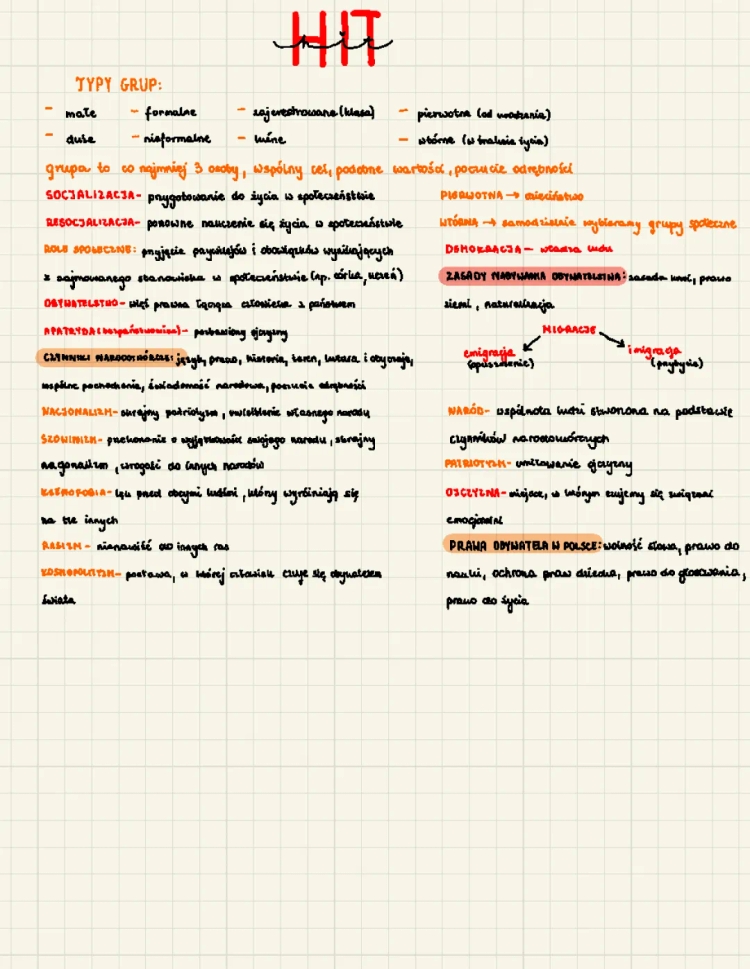 HIT
hit
TYPY GRUP:
- małe - formalne - zajerestrowane (klasa) - pierwotne (od urodzenia)
- duże - nieformalne - luźne - wtórne (w trakcie życia)
grupa to co najmniej 3 osoby, wspólny cel, podobne wartości, poczucie odrębności
SOCJALIZACJA- przygotowanie do życia w społeczeństwie
RESOCJALIZACJA- ponowne nauczenie się życia w społeczeństwie
ROLE SPOŁECZNE: przyjęcie przywilejów i obowiązków wynikających
z zajmowanego stanowiska w społeczeństwie (np. córka, uczeń)
OBYWATELSTWO- więź prawna łącząca człowieka z państwem
APATRYDA (bezpaństwowiec)- pozbawiony ojczyzny
CZYNNIKI NARODOTWÓRCZE: język, prawo, historia, teren, kultura i obyczaje,
wspólne pochodzenie, świadomość narodowa, poczucie odrębności
NACJONALIZM- skrajny patriotyzm, uwielbienie własnego narodu
SZOWINIZM- przekonanie o wyjątkowości swojego narodu, skrajny
nacjonalizm, wrogość do innych narodów
KSENOFOBIA- lęk przed obcymi ludźmi, którzy wyróżniają się
na tle innych
RASIZM- nienawiść do innych ras
KOSMOPOLITYZM- postawa, w której człowiek czuje się obywatelem
świata
PIERWOTNA → dzieciństwo
WTÓRNA → samodzielnie wybieramy grupy społeczne
DEMOKRACJA- władza ludu
ZASADY NABYWANIA OBYWATELSTWA: zasada krwi, prawo
ziemi, naturalizacja
MIGRACJE
emigracja imigracja
(opuszczenie) (przybycie)
NARÓD- wspólnota ludzi stworzona na podstawie
czynników narodotwórczych
PATRIOTYZM- umiłowanie ojczyzny
OJCZYZNA- miejsce, w którym czujemy się związani
emocjonalni
PRAWA OBYWATELA W POLSCE: wolność słowa, prawo do
nauki, ochrona praw dziecka, prawo do głosowania,
prawo do życia